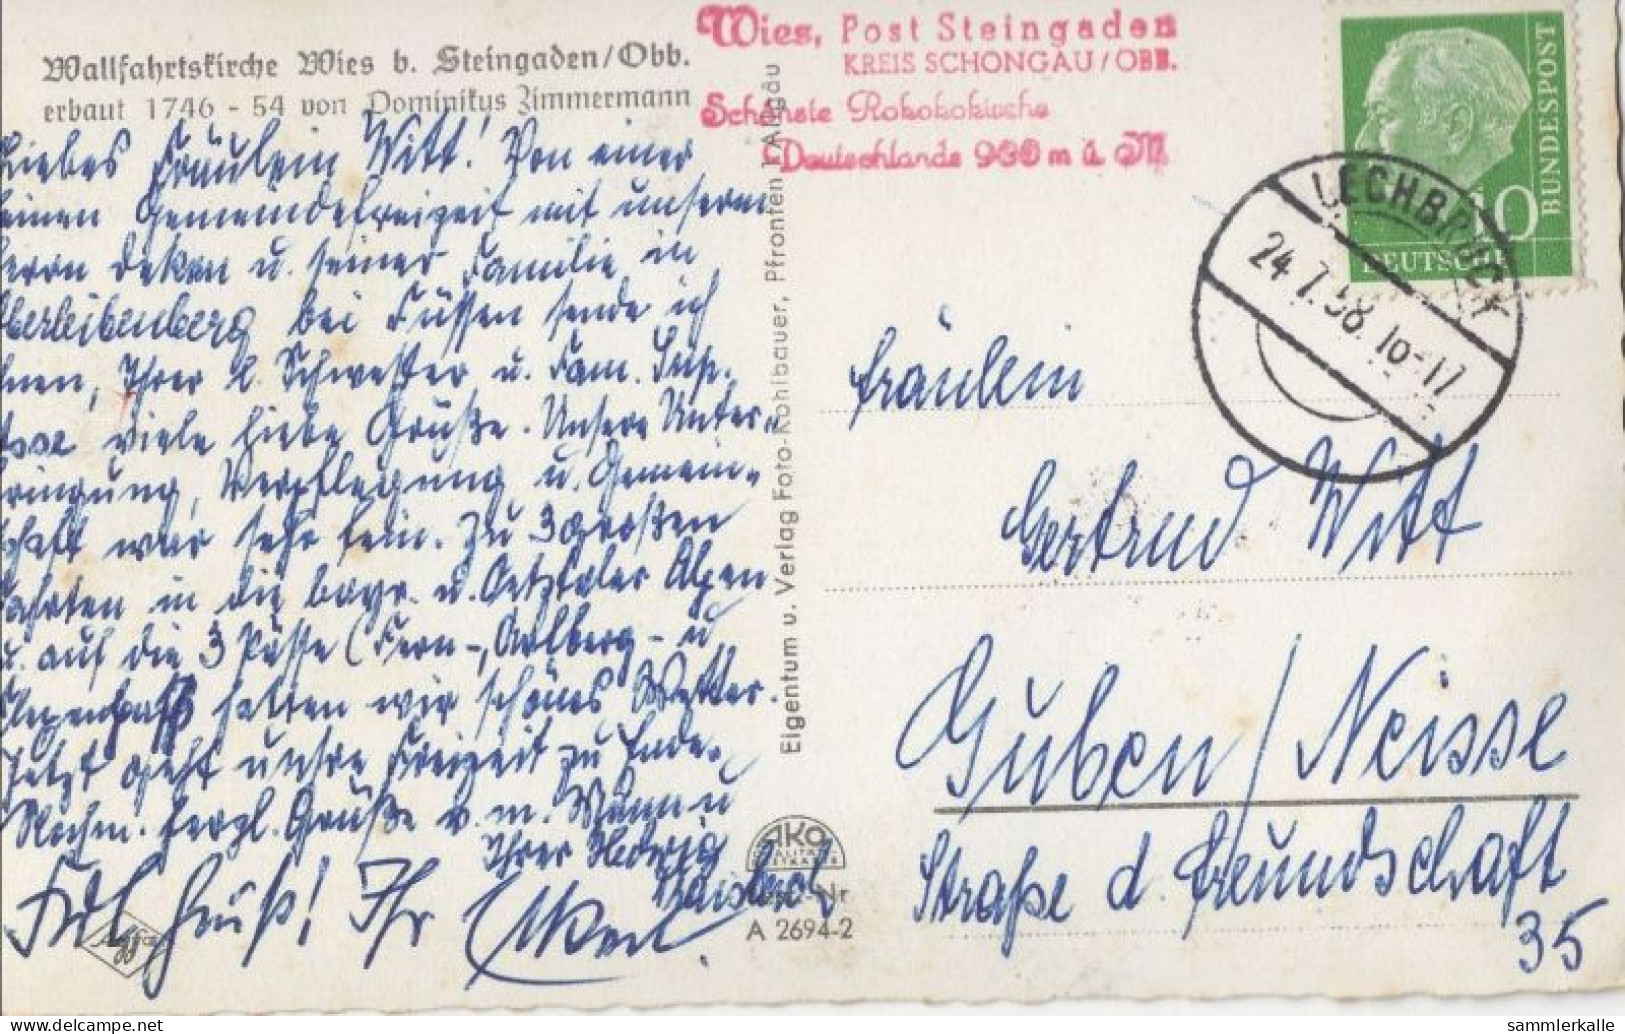 Wallfahrtskirche Wies b. Steingaden/Obb.
erbaut 1746 - 54 von Dominikus Zimmermann
Wies, Post Steingaden
KREIS SCHONGAU/OBB.
Schönste Rokokokirche
Deutschlands 930 m ü. M
10
DEUTSCHE
BUNDESPOST
LECHBRUCK
24.7.58.16-17
iebes Fräulein Witt! Von einer
einen Gemeindefreizeit mit unserm
errn Dekan u. seiner Familie in
berleibenberg bei Füssen sende ich
hnen, Ihrer l. Schwester u. Fam.
viele liebe Grüße. Unsere Unter-
ringung, Verpflegung u. Gemein-
schaft war sehr fein. Zu 3 großen
ahrten in die bayr. u. Oetztaler Alpen
u. auf die 3 Pässe (Fern-, Arlberg- u
lexenpaß hatten wir schönes Wetter.
Jetzt geht unsre Freizeit zu Ende.
Nochm. herzl. Grüße v. m. Mann u
Ihrer Hedwig
Gruß! Ihr
Eigentum u. Verlag Foto-Kohlbauer, Pfronten i. Allgäu
AKO
Agfa
A 2694-2
Fräulein
Gertrud Witt
Guben/Neisse
Straße d. Freundschaft
35
sammlerkalle